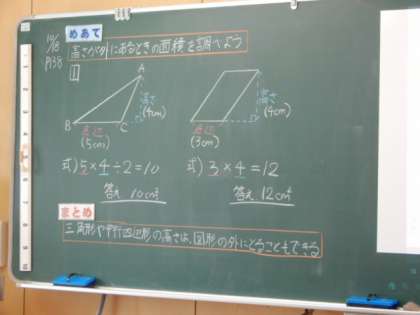 10/18
P138
めあて
高さが外にあるときの面積を調べよう
1
A
高さ
(4cm)
B
C
底辺
(5cm)
高さ
(4cm)
底辺
(3cm)
式) 5×4÷2=10
式) 3×4=12
答え 10cm²
答え 12cm²
まとめ
三角形や平行四辺形の高さは、図形の外にとることもできる